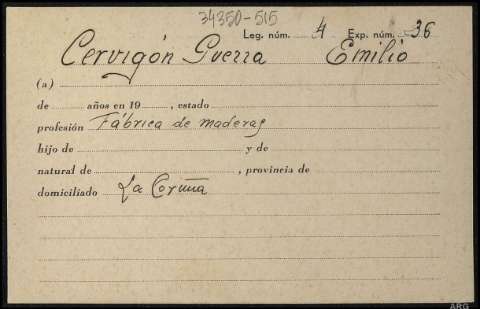 34350-515
Leg. núm. 4 Exp. núm. 36
Cervigón Guerra Emilio
(a)
de años en 19 , estado
profesión Fábrica de maderas
hijo de y de
natural de , provincia de
domiciliado La Coruña
ARG